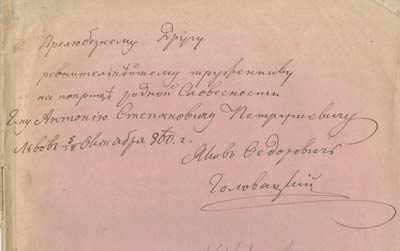 Прелюбезному Другу
ревнительнѣйшему труженнику
на поприщѣ родной Словесности
Г-ну Антонію Степановичу Петрушевичу
Львовъ октября 860. г.
Яковъ Ѳедоровичъ
Головацкій